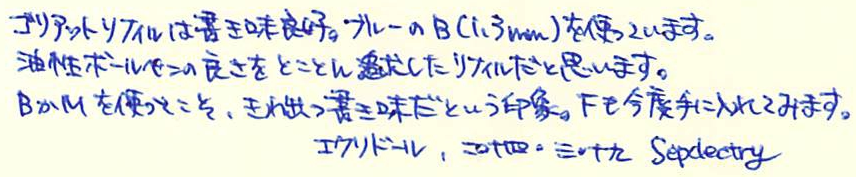 ゴリアットリフィルは書き味良好。ブルーのB(1.3mm)を使っています。
油性ボールペンの良さをとことん追求したリフィルだと思います。
BかMを使ってこそ、きわ立つ書き味だという印象。Fも今度手に入れてみます。
エクリドール, 二〇十四・三・十九 Sepdectry